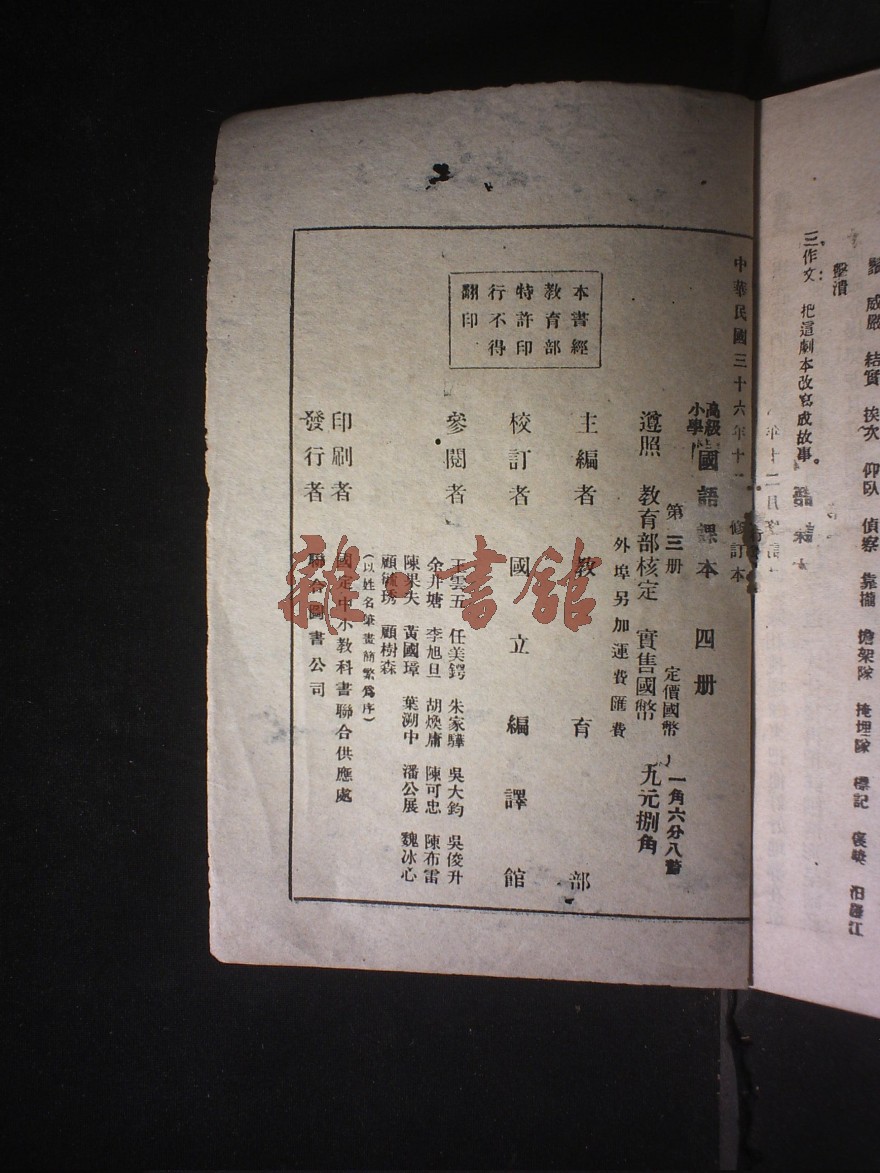 鬚 威嚴 結實 挨次 仰臥 偵察 靠攏 擔架隊 掩埋隊 標記 汨羅江
擊潰
三、作文: 把這劇本改寫成故事。
中華民國三十六年十二 修訂本
高級小學 國語課本 四册
第三册 定價國幣 一角六分八釐
遵照 教育部核定 實售國幣 九元捌角
外埠另加運費匯費
本書經
教育部
特許印
行不得
翻印
主編者 教育部
校訂者 國立編譯館
參閱者 王雲五 任美鍔 朱家驊 吳大鈞 吳俊升
余井塘 李旭旦 胡煥庸 陳可忠 陳布雷
陳果夫 黃國璋 葉溯中 潘公展 魏冰心
顧毓琇 顧樹森
(以姓名筆畫簡繁爲序)
印刷者 國定中小教科書聯合供應處
發行者 聯合圖書公司
雜·書館